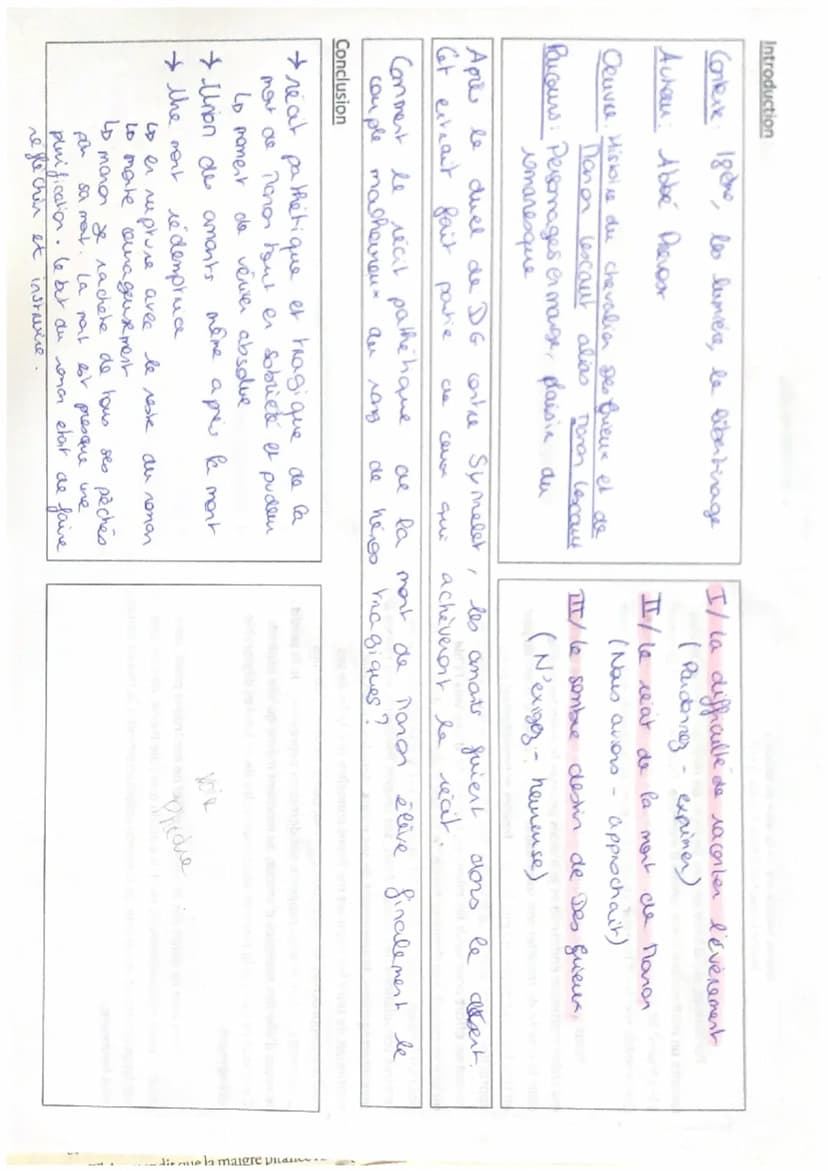 Introduction
Contexte: 18ème, les lumière, le libertinage
Auteur: Abbé Prevost
Oeuvre: Histoire du chevalier Des Grieux et de
Manon Lescaut alias Manon Lescaut
Parcours: Personnages en marge, plaisir du
romanesque
I/ La difficulté de raconter l'évènement
(Pardonnez - exprimer)
II/ Le récit de la mort de Manon
(Nous avions - approchait)
III/ Le sombre destin de Des Grieux,
(N'exigez - heureuse)
Après le duel de DG contre Synnelet, les amants fuient alors le désert.
Cet extrait fait partie de ceux qui achèveront le récit.
Comment le récit pathétique de la mort de Manon élève finalement le
couple malheureux au rang de héros tragiques?
Conclusion
→ récit pathétique et tragique de la
mort de Manon tout en sobriété et pudeur
↳ moment de vérité absolue
→ Union des amants même après la mort
→ Une mort rédemptrice
↳ en rupture avec le reste du roman
↳ morte courageusement
↳ manon se rachète de tous ses péchés
par sa mort. La mort est presque une
purification. Le but du roman était de faire
réfléchir et instruire.
voir
Phèdre
que la maigre